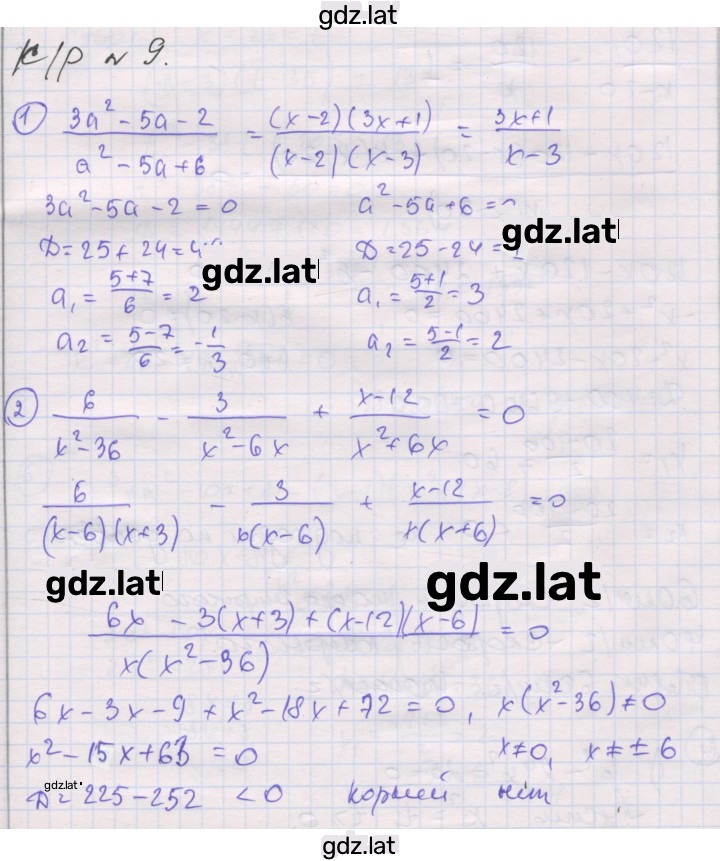 gdz.lat
К/р № 9.
① (3a² - 5a - 2)/(a² - 5a + 6) = ((x-2)(3x+1))/((x-2)(x-3)) = (3x+1)/(x-3)
3a² - 5a - 2 = 0 a² - 5a + 6 =
D = 25 + 24 = D = 25 - 24 =
gdz.lat gdz.lat
a₁ = (5+7)/6 = 2 a₁ = (5+1)/2 = 3
a₂ = (5-7)/6 = -1/3 a₂ = (5-1)/2 = 2
② 6/(x²-36) - 3/(x²-6x) + (x-12)/(x²+6x) = 0
6/((x-6)(x+3)) - 3/(x(x-6)) + (x-12)/(x(x+6)) = 0
gdz.lat gdz.lat
(6x - 3(x+3) + (x-12)(x-6))/(x(x²-36)) = 0
6x - 3x - 9 + x² - 18x + 72 = 0, x(x²-36) ≠ 0
x² - 15x + 63 = 0 x≠0, x ≠ ± 6
gdz.lat
D = 225 - 252 < 0 корней нет
gdz.lat